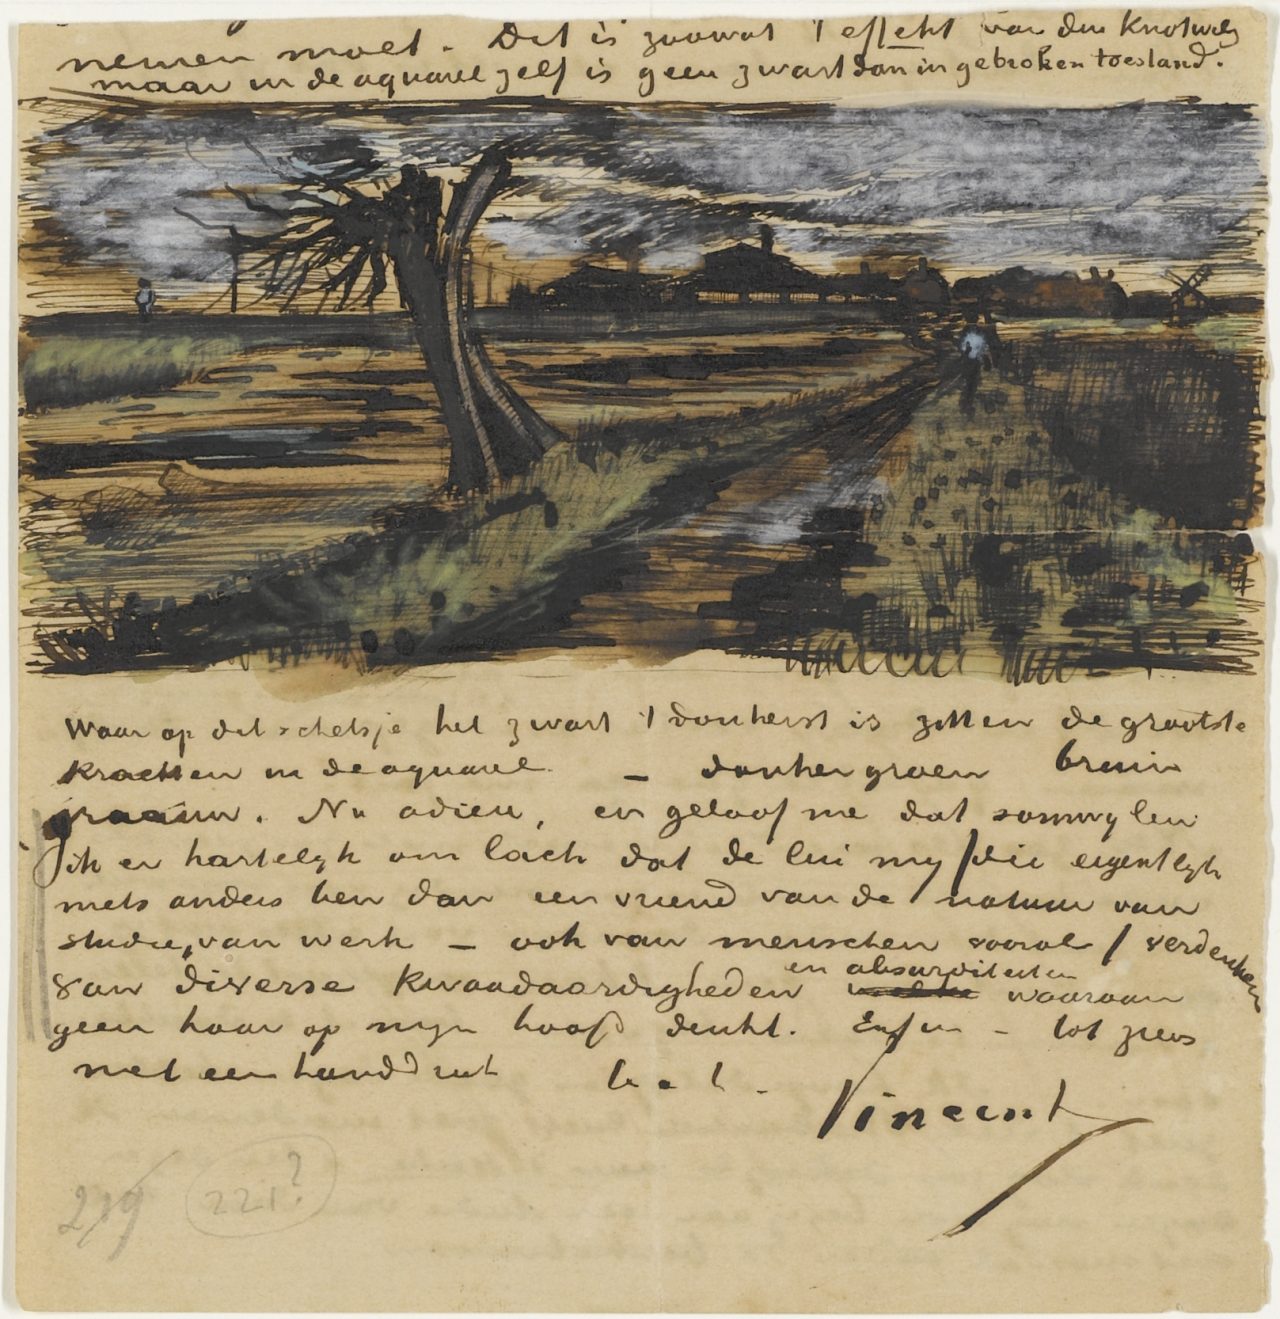 nemen moet. Dit is zoowat 't effekt van den knotwilg
maar in de aquarel zelf is geen zwart dan in gebroken toestand.
Waar op dit schetsje het zwart 't donkerst is zitten de grootste
krachten in de aquarel – donkergroen bruin
graauw. Nu adieu, en geloof me dat somwylen
ik er hartelyk om lach dat de lui my /die eigentlyk
niets anders ben dan een vriend van de natuur van
studie, van werk – ook van menschen vooral/ verdenken
van diverse kwaadaardigheden en absurditeiten waaraan
geen haar op myn hoofd denkt. Enfin – tot ziens
met een handdruk
t. à t.
Vincent
219
221?